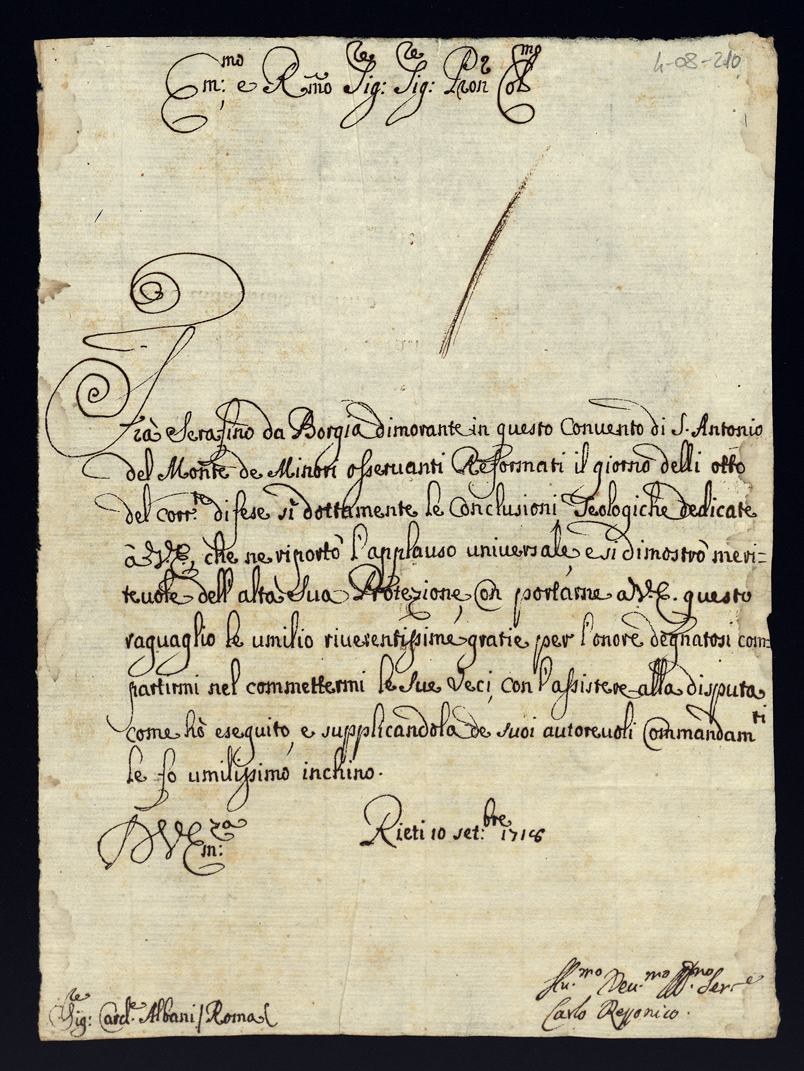 Em:mo e R.mo Sig:re Sig:re Pron Col.mo
4-08-210
Frà Serafino da Borgia dimorante in questo Convento di S. Antonio
del Monte de Minori osseruanti Reformati il giorno delli otto
del corr.te difese sì dottamente le Conclusioni Teologiche dedicate
à V.E., che ne riportò l'applauso universale, e si dimostrò meri=
teuole dell'alta Sua Protezione, Con portarne a V.E. questo
raguaglio le umilio riuerentissime gratie per l'onore degnatosi com=
partirmi nel commettermi le Sue Veci, con l'assistere alla disputa
come hò eseguito, e supplicandola de suoi autoreuoli Commandam.ti
le fo umilissimo inchino.
D V Em:za
Rieti 10 set:bre 1718
Sig:re Card.e Albani / Roma
Hu.mo Deu.mo Ser.e
Carlo Rezzonico.